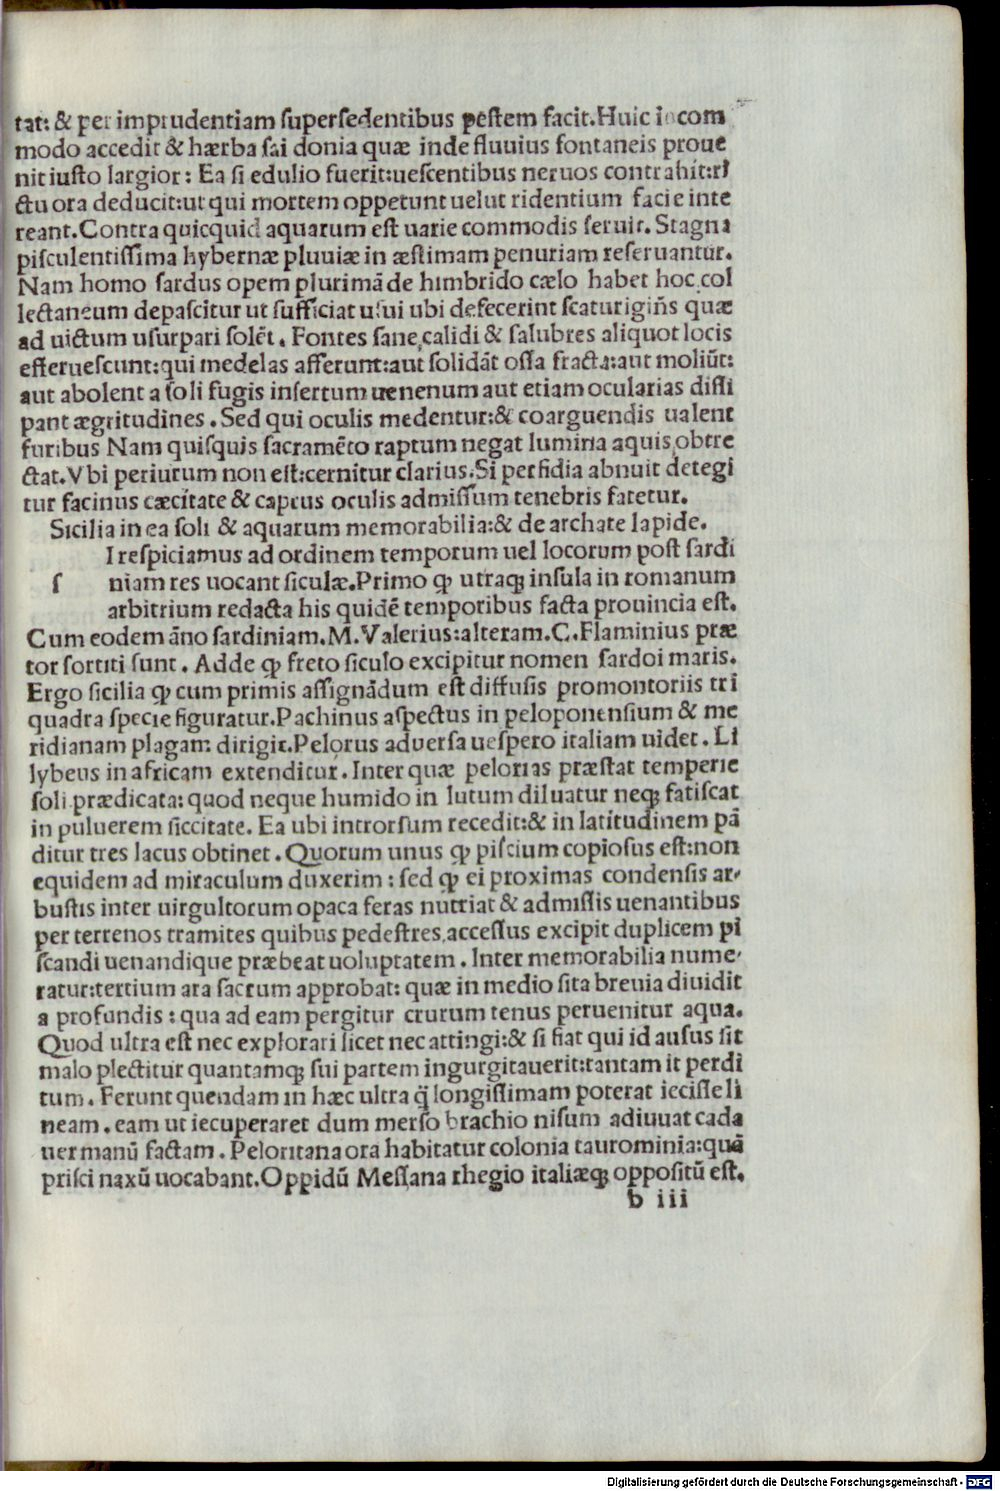 tat: & per imprudentiam superſedentibus peſtem facit. Huic incom
modo accedit & hærba ſai donia quæ inde fluuius fontaneis proue
nit iuſto largior: Ea ſi edulio fuerit: ueſcentibus neruos contrahit: ri
ctu ora deducit: ut qui mortem oppetunt uelut ridentium facie inte
reant. Contra quicquid aquarum eſt uarie commodis ſeruit. Stagna
piſculentiſſima hybernæ pluuiæ in æſtimam penuriam reſeruantur.
Nam homo ſardus opem plurimā de himbrido cælo habet hoc col
lectaneum depaſcitur ut ſufficiat uſui ubi defecerint ſcaturigiñs quæ
ad uictum uſurpari ſolēt. Fontes ſane calidi & ſalubres aliquot locis
efferueſcunt: qui medelas afferunt: aut ſolidāt oſſa fracta: aut moliūt:
aut abolent a ſoli fugis inſertum uenenum aut etiam ocularias diſſi
pant ægritudines. Sed qui oculis medentur: & coarguendis ualent
furibus Nam quiſquis ſacramēto raptum negat lumina aquis obtre
ctat. Vbi periurum non eſt: cernitur clarius. Si perfidia abnuit detegi
tur facinus cæcitate & captus oculis admiſſum tenebris fatetur.
Sicilia in ea ſoli & aquarum memorabilia: & de archate lapide.
I reſpiciamus ad ordinem temporum uel locorum poſt ſardi
ſ niam res uocant ſiculæ. Primo ꝙ utraqꝫ inſula in romanum
arbitrium redacta his quidē temporibus facta prouincia eſt.
Cum eodem āno ſardiniam. M. Valerius: alteram. C. Flaminius præ
tor ſortiti ſunt. Adde ꝙ freto ſiculo excipitur nomen ſardoi maris.
Ergo ſicilia ꝙ cum primis aſſignādum eſt diffuſis promontoriis tri
quadra ſpecie figuratur. Pachinus aſpectus in peloponenſium & me
ridianam plagam dirigit. Pelorus aduerſa ueſpero italiam uidet. Li
lybeus in africam extenditur. Inter quæ pelorias præſtat temperie
ſoli prædicata: quod neque humido in lutum diluatur neqꝫ fatiſcat
in puluerem ſiccitate. Ea ubi introrſum recedit: & in latitudinem pā
ditur tres lacus obtinet. Quorum unus ꝙ piſcium copioſus eſt: non
equidem ad miraculum duxerim: ſed ꝙ ei proximas condenſis ar-
buſtis inter uirgultorum opaca feras nutriat & admiſſis uenantibus
per terrenos tramites quibus pedeſtres acceſſus excipit duplicem pi
ſcandi uenandique præbeat uoluptatem. Inter memorabilia nume-
ratur: tertium ara ſacrum approbat: quæ in medio ſita breuia diuidit
a profundis: qua ad eam pergitur crurum tenus peruenitur aqua.
Quod ultra eſt nec explorari licet nec attingi: & ſi fiat qui id auſus ſit
malo plectitur quantamqꝫ ſui partem ingurgitauerit: tantam it perdi
tum. Ferunt quendam in hæc ultra q̄ longiſſimam poterat ieciſſe li
neam. eam ut iecuperaret dum merſo brachio niſum adiuuat cada
uer manū factam. Peloritana ora habitatur colonia taurominia: quā
priſci naxū uocabant. Oppidū Meſſana rhegio italiæqꝫ oppoſitū eſt.
b iii
Digitalisierung gefördert durch die Deutsche Forschungsgemeinschaft - DFG